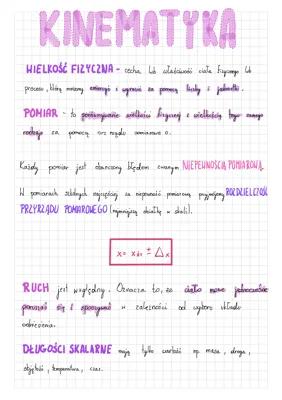 KINEMATYKA
WIELKOŚĆ FIZYCZNA - cecha lub właściwość ciała fizycznego lub
procesu, którą możemy i wyrazić za pomocą liczby i jednostki.
POMIAR - to porównywanie wielkości fizycznej z wielkością tego samego
rodzaju za pomocą przyrządu pomiarowego.
Każdy pomiar jest obarczony błędem zwanym NIEPEWNOŚCIĄ POMIAROWĄ.
W pomiarach szkolnych najczęściej za niepewność pomiarową przyjmujemy ROZDZIELCZOŚĆ
PRZYRZĄDU POMIAROWEGO (najmniejszą działkę w skali).
± Δx
RUCH jest względny. Oznacza to, że ciało może jednocześnie
poruszać się i spoczywać w zależności od wyboru układu
odniesienia.
DŁUGOŚCI SKALARNE mają tylko wartość np. masa, droga,
objętość, temperatura, czas.